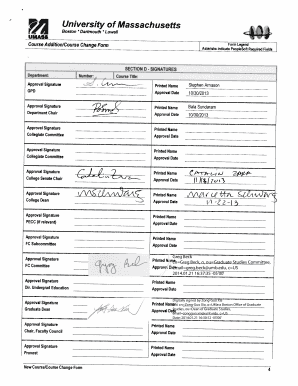 UMASS
University of Massachusetts
Boston * Dartmouth * Lowell
Course Addition/Course Change Form
Form Legend
Asterisks indicate PeopleSoft Required Fields
SECTION D - SIGNATURES
Department: Number: Course Title:
Approval Signature Printed Name Stephen Arnason
GPD Approval Date 10/30/2013
Approval Signature Printed Name Bala Sundaram
Department Chair Approval Date 10/30/2013
Approval Signature Printed Name
Collegiate Committee Approval Date
Approval Signature Printed Name
Collegiate Committee Approval Date
Approval Signature Printed Name CATALIN ZARA
College Senate Chair Approval Date 11/18/2013
Approval Signature Printed Name Marietta Schwartz
College Dean Approval Date 11-22-13
Approval Signature Printed Name
PECC (if relevant) Approval Date
Approval Signature Printed Name
FC Subcommittee Approval Date
Approval Signature Greg Beck
FC Committee Approval Date
2014.01.21 16:37:35 -05'00'
Approval Signature Printed Name
Dir. Undergrad Education Approval Date
Approval Signature Printed Name
Graduate Dean Approval Date
Approval Signature Printed Name
Chair, Faculty Council Approval Date
Approval Signature Printed Name
Provost Approval Date
New Course/Course Change Form 4